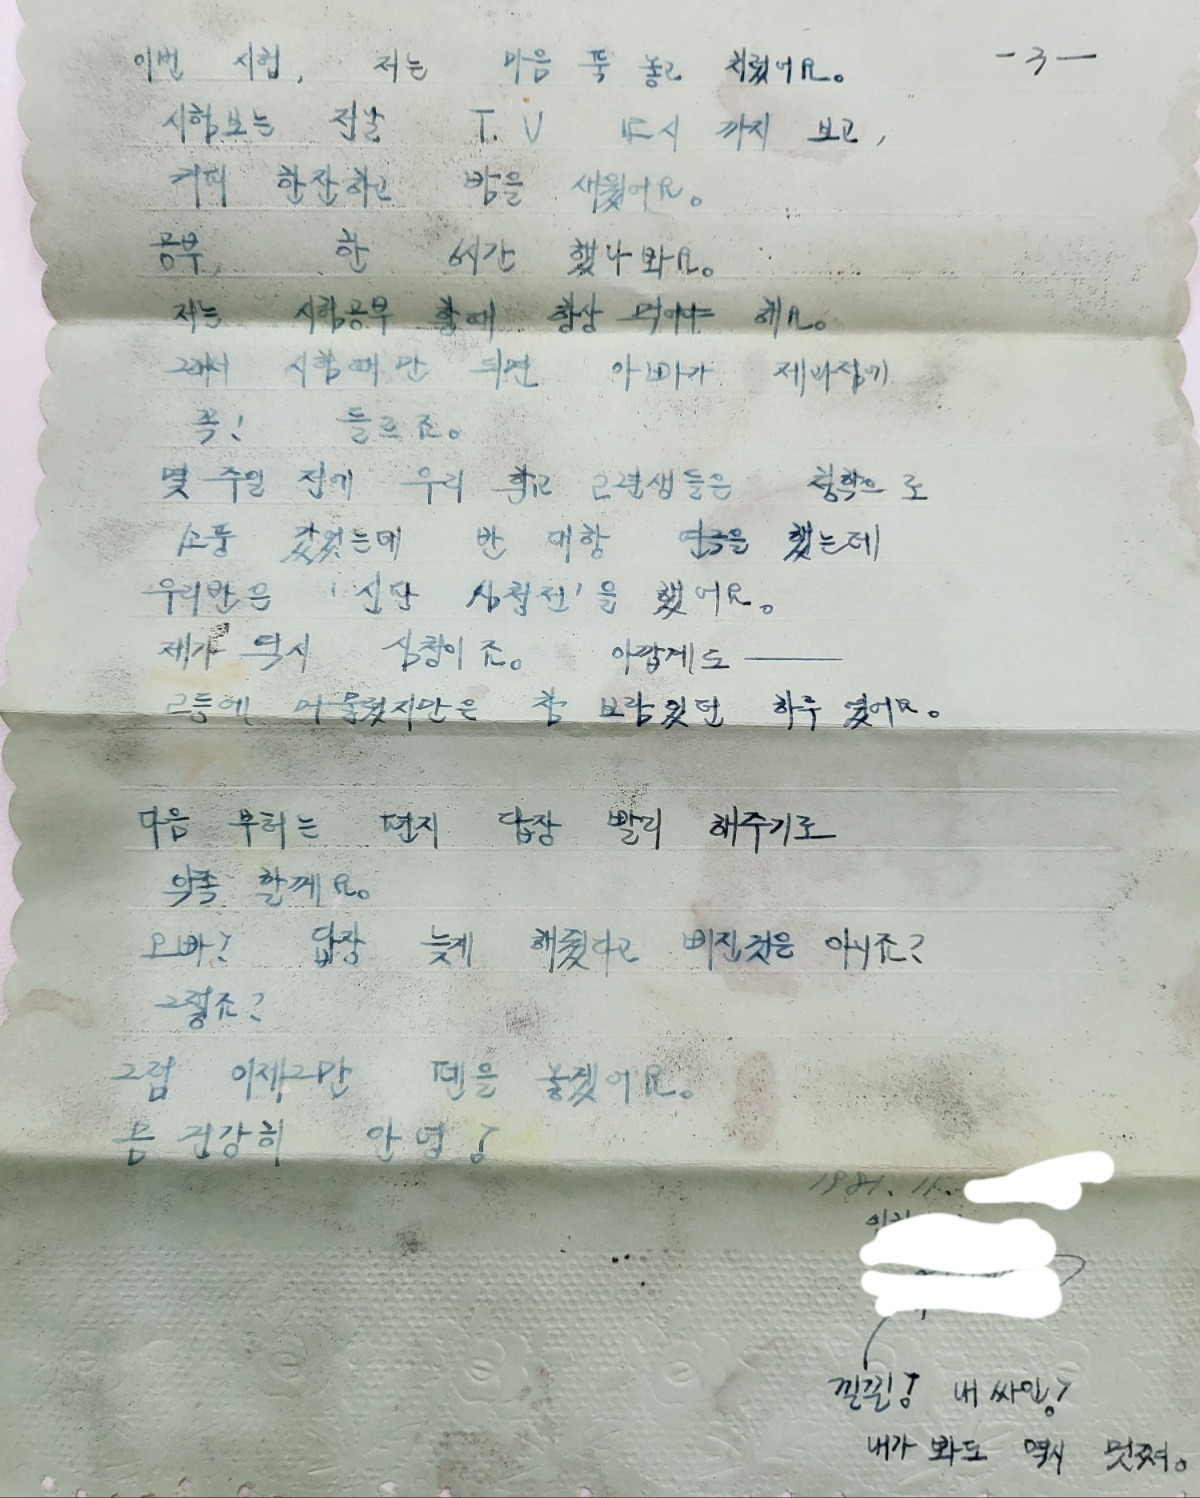 - 3 -
이번 시험, 저는 마음 푹 놓고 치뤘어요.
시험보는 전날 T.V 12시 까지 보고,
커피 한잔하고 밤을 새웠어요.
공부, 한 6시간 했나봐요.
저는 시험공부 할때 항상 먹어야 해요.
그래서 시험때만 되면 아빠가 제과점에
꼭! 들르죠.
몇 주일 전에 우리 학교 2학년생들은
소풍 갔었는데 반 대항 연극을 했는데
우리반은 '신판 심청전'을 했어요.
제가 역시 심청이죠. 아깝게도 ———
2등에 머물렀지만은 참 보람있던 하루 였어요.
다음 부터는 편지 답장 빨리 해주기로
약속 할께요.
오빠? 답장 늦게 해줬다고 삐진것은 아니죠?
그렇죠?
그럼 이제그만 펜을 놓겠어요.
몸 건강히 안녕!
1981. 11.
낄낄! 내 싸인!
내가 봐도 역시 멋져.